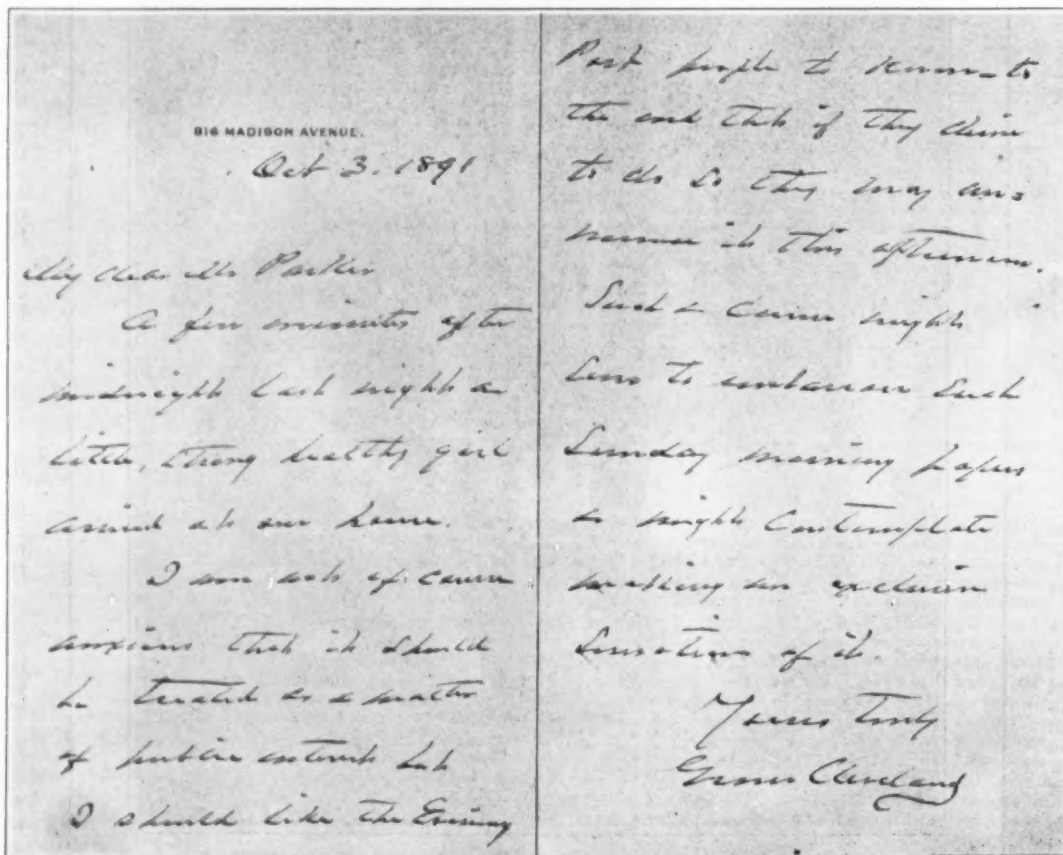 816 MADISON AVENUE.
Oct 3. 1891
My dear Mr Parker
A few minutes after
midnight last night a
little, strong healthy girl
arrived at our house.
I am not of course
anxious that it should
be treated as a matter
of public interest but
I should like the Evening
Post people to know - to
the end that if they desire
to do so they may an-
nounce it this afternoon.
Such a course might
serve to embarrass such
Sunday morning papers
as might contemplate
making an exclusive
sensation of it.
Yours truly
Grover Cleveland